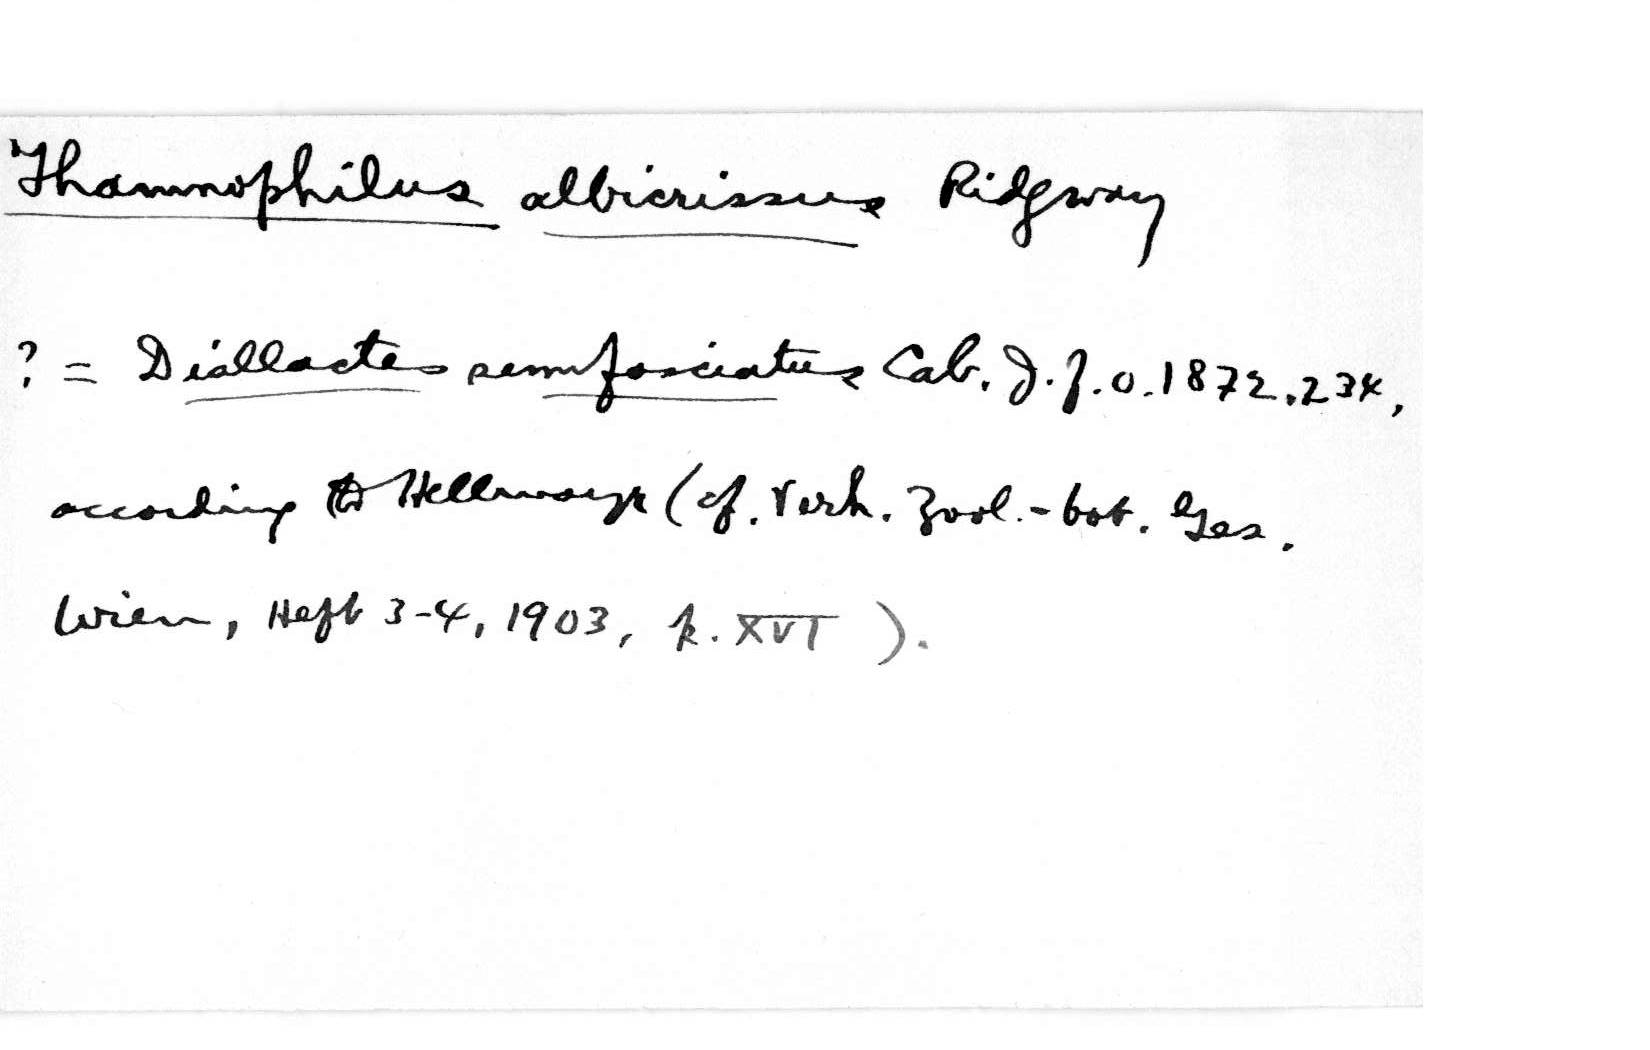 Thamnophilus albicrissus Ridgway
? = Diallactes semifasciatus Cab. J. f. O. 1872, 234,
according to Hellmayr (cf. Verh. Zool.-bot. Ges.
Wien, Heft 3-4, 1903, p. XVI ).